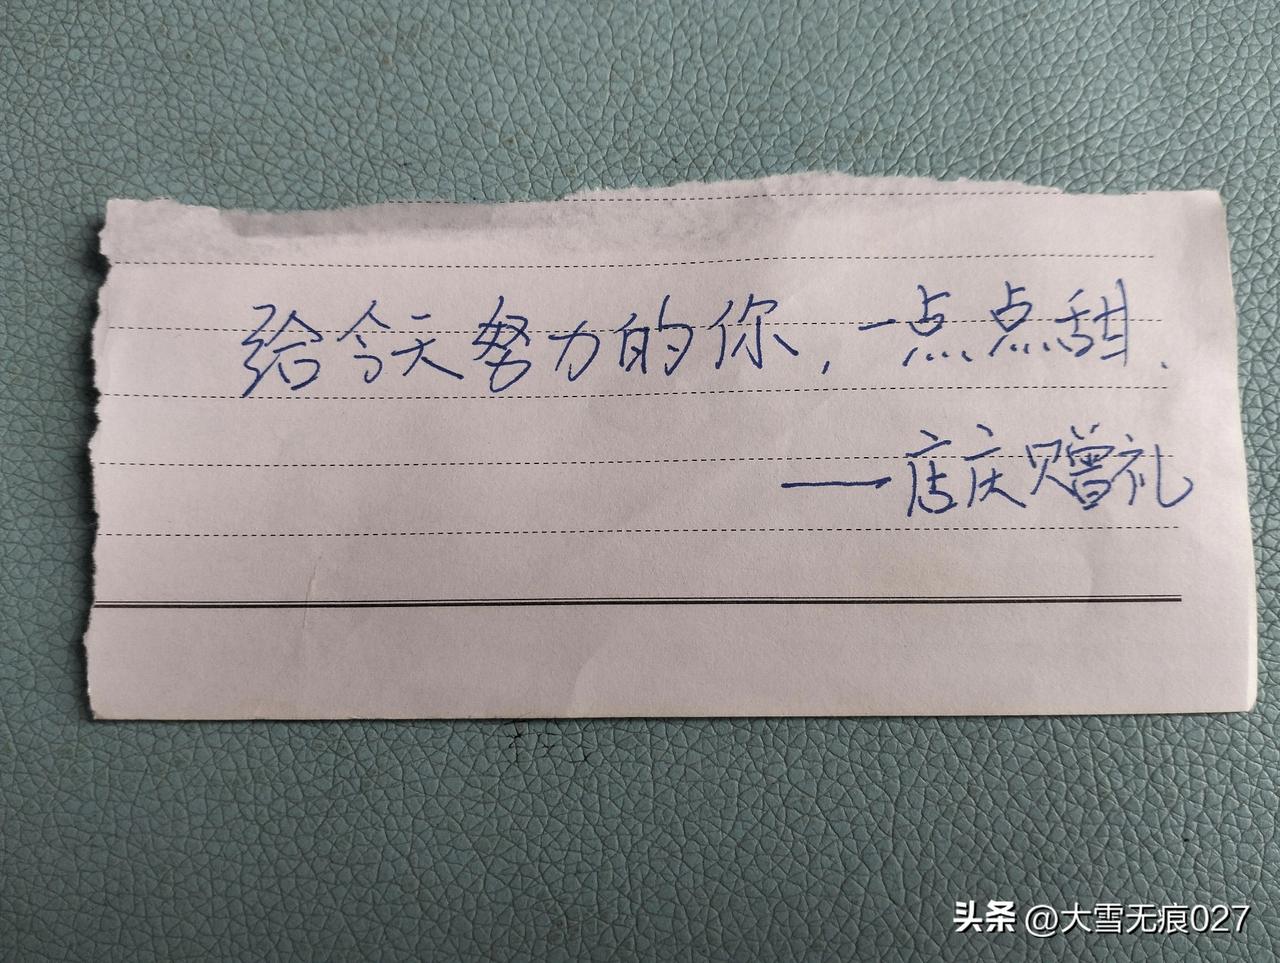 给今天努力的你,一点点甜.
——店庆赠礼
头条 @大雪无痕027